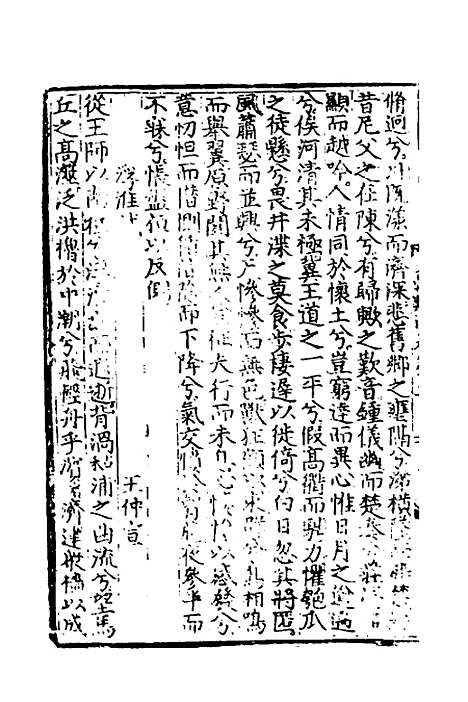 脩迥兮川既漾而濟深悲舊鄉之壅隔兮涕橫
昔尼父之在陳兮有歸歟之歎音鍾儀幽而楚奏兮莊
顯而越吟人情同於懷土兮豈窮達而異心惟日月之逾邁
兮俟河清其未極冀王道之一平兮假高衢而騁力懼匏瓜
之徒懸兮畏井渫之莫食步棲遲以徙倚兮白日忽其將匿
風蕭瑟而並興兮天慘慘而無色獸狂顧以求群兮鳥相鳴
而舉翼原野闃其無人兮征夫行而未息心悽愴以感發兮
意忉怛而憯惻循階除而下降兮氣交憤於胸臆夜參半而
不寐兮悵盤桓以反側
浮淮賦 王仲宣
從王師以南征兮浮淮水而遐逝背渦浦之曲流兮望馬
丘之高澨泛洪櫓於中潮兮飛輕舟乎濱濟建衆檣以成